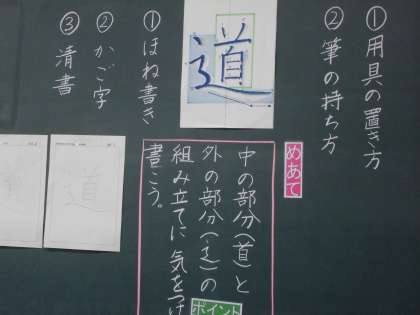 ①用具の置き方
②筆の持ち方
道
①ほね書き
②かご字
③清書
めあて
中の部分(首)と
外の部分(⻌)の
組み立てに気をつけ
書こう。
ポイント
道